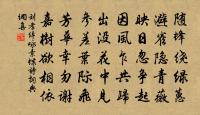 隨蜂繞綠蕙
避雀隱青薇
映日忽爭起
因風乍共歸
出沒花中見
參差葉際飛
芳華幸勿謝
嘉樹欲相依
劉孝綽詠素蝶詩詞典
網